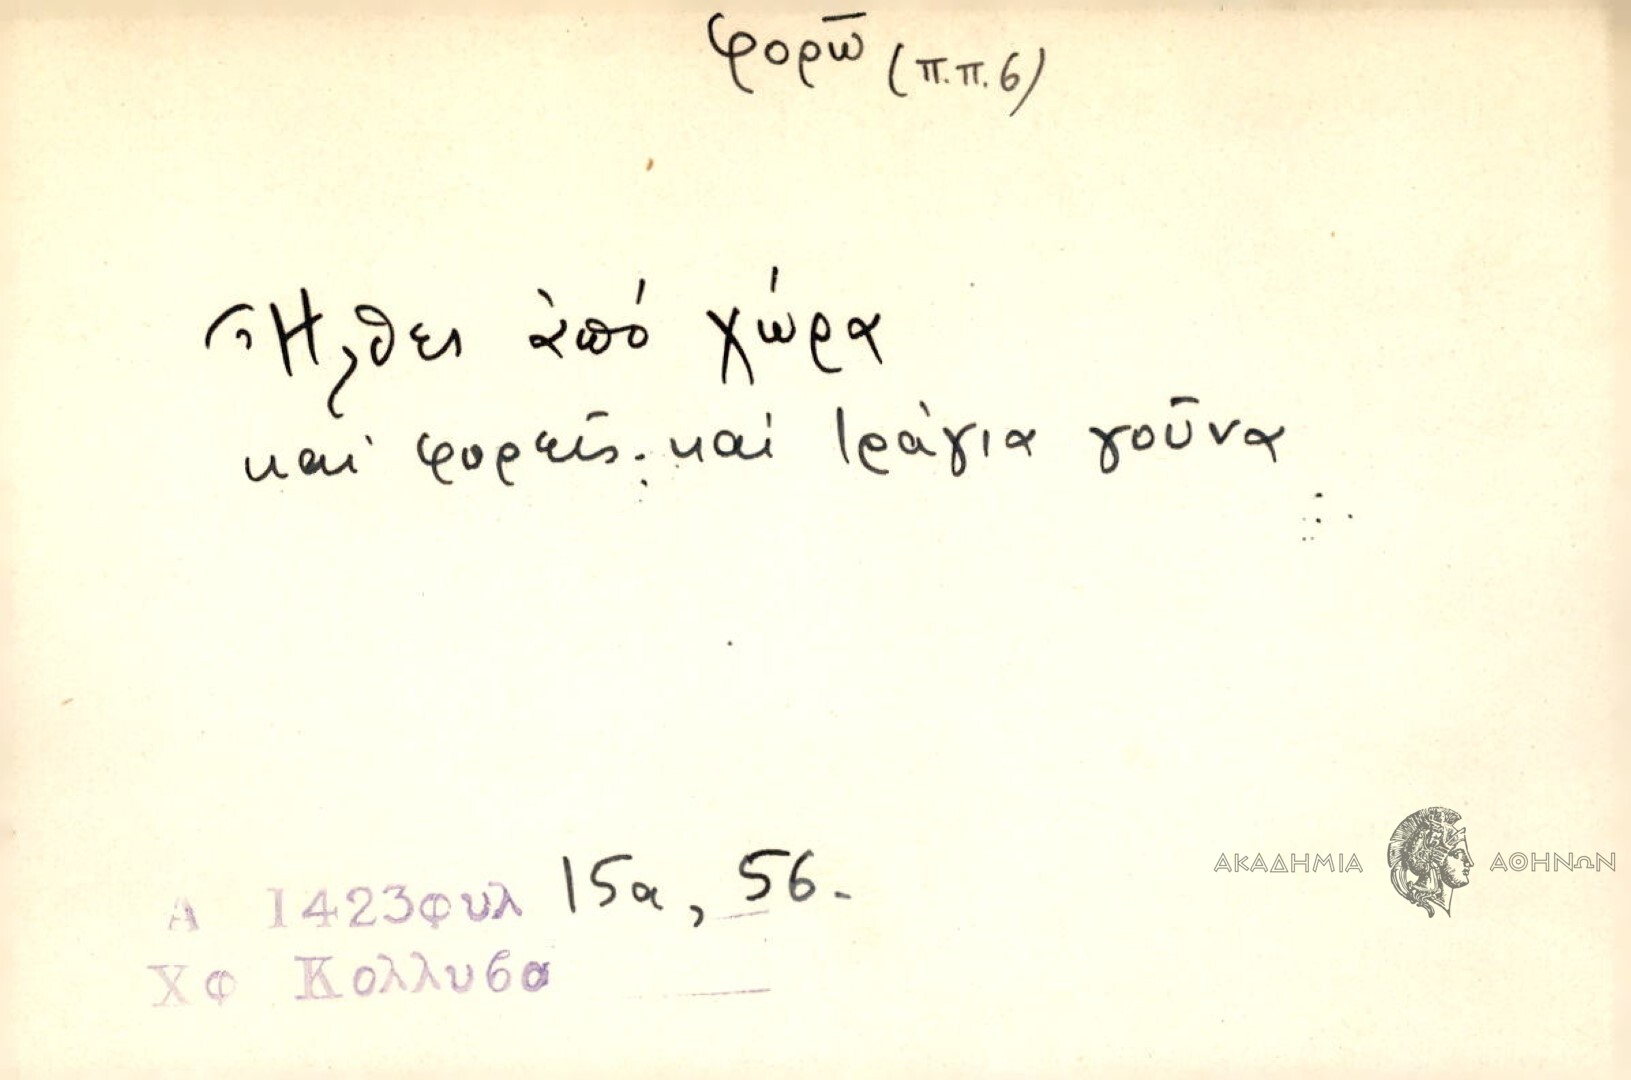 φορῶ (π.π.6)
Ἦλθες ἀπό χώρα
καί φορεῖς καί τράγια γοῦνα
Α 1423φυλ 15α, 56.
Χφ Κολλυβα
ΑΚΑΔΗΜΙΑ ΑΘΗΝΩΝ